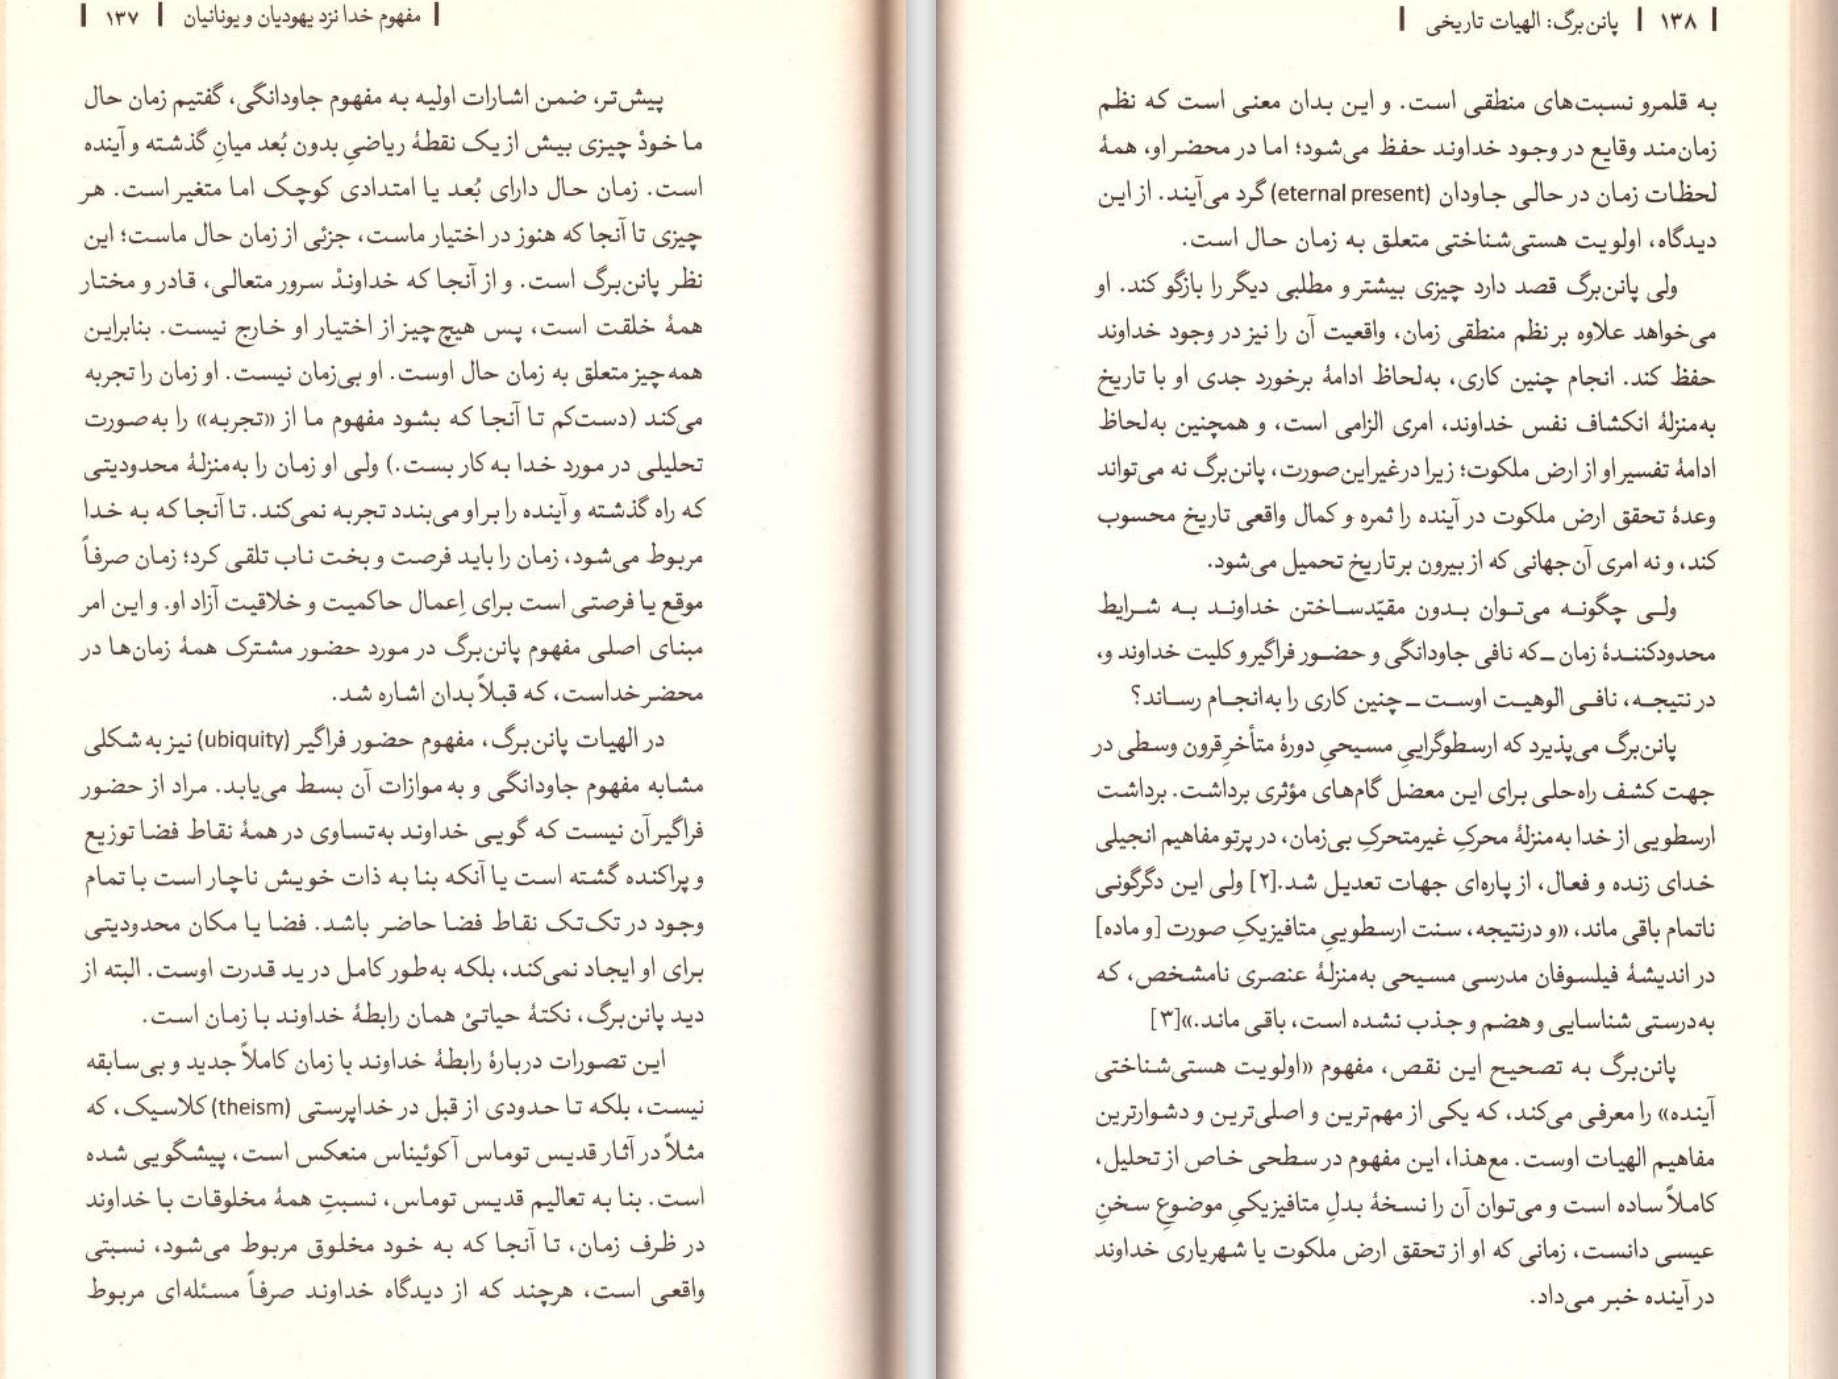 مفهوم خدا نزد یهودیان و یونانیان | ۱۳۷
پیش‌تر، ضمن اشارات اولیه به مفهوم جاودانگی، گفتیم زمان حال
ما خودْ چیزی بیش از یک نقطهٔ ریاضیِ بدون بُعد میانِ گذشته و آینده
است. زمان حال دارای بُعد یا امتدادی کوچک اما متغیر است. هر
چیزی تا آنجا که هنوز در اختیار ماست، جزئی از زمان حال ماست؛ این
نظر پانن‌برگ است. و از آنجا که خداوندْ سرور متعالی، قادر و مختار
همهٔ خلقت است، پس هیچ چیز از اختیار او خارج نیست. بنابراین
همه چیز متعلق به زمان حال اوست. او بی‌زمان نیست. او زمان را تجربه
می‌کند (دست‌کم تا آنجا که بشود مفهوم ما از «تجربه» را به‌صورت
تحلیلی در مورد خدا به کار بست.) ولی او زمان را به‌منزلهٔ محدودیتی
که راه گذشته و آینده را بر او می‌بندد تجربه نمی‌کند. تا آنجا که به خدا
مربوط می‌شود، زمان را باید فرصت و بخت ناب تلقی کرد؛ زمان صرفاً
موقع یا فرصتی است برای اِعمال حاکمیت و خلاقیت آزاد او. و این امر
مبنای اصلی مفهوم پانن‌برگ در مورد حضور مشترک همهٔ زمان‌ها در
محضر خداست، که قبلاً بدان اشاره شد.
در الهیات پانن‌برگ، مفهوم حضور فراگیر (ubiquity) نیز به شکلی
مشابه مفهوم جاودانگی و به موازات آن بسط می‌یابد. مراد از حضور
فراگیر آن نیست که گویی خداوند به‌تساوی در همهٔ نقاط فضا توزیع
و پراکنده گشته است یا آنکه بنا به ذات خویش ناچار است با تمام
وجود در تک‌تک نقاط فضا حاضر باشد. فضا یا مکان محدودیتی
برای او ایجاد نمی‌کند، بلکه به‌طور کامل در ید قدرت اوست. البته از
دید پانن‌برگ، نکتهٔ حیاتیْ همان رابطهٔ خداوند با زمان است.
این تصورات دربارهٔ رابطهٔ خداوند با زمان کاملاً جدید و بی‌سابقه
نیست، بلکه تا حدودی از قبل در خداپرستی (theism) کلاسیک، که
مثلاً در آثار قدیس توماس آکوئیناس منعکس است، پیشگویی شده
است. بنا به تعالیم قدیس توماس، نسبتِ همهٔ مخلوقات با خداوند
در ظرف زمان، تا آنجا که به خود مخلوق مربوط می‌شود، نسبتی
واقعی است، هرچند که از دیدگاه خداوند صرفاً مسئله‌ای مربوط
۱۳۸ | پانن‌برگ: الهیات تاریخی
به قلمرو نسبت‌های منطقی است. و این بدان معنی است که نظم
زمان‌مند وقایع در وجود خداوند حفظ می‌شود؛ اما در محضر او، همهٔ
لحظات زمان در حالی جاودان (eternal present) گرد می‌آیند. از این
دیدگاه، اولویت هستی‌شناختی متعلق به زمان حال است.
ولی پانن‌برگ قصد دارد چیزی بیشتر و مطلبی دیگر را بازگو کند. او
می‌خواهد علاوه بر نظم منطقی زمان، واقعیت آن را نیز در وجود خداوند
حفظ کند. انجام چنین کاری، به‌لحاظ ادامهٔ برخورد جدی او با تاریخ
به‌منزلهٔ انکشاف نفس خداوند، امری الزامی است، و همچنین به‌لحاظ
ادامهٔ تفسیر او از ارض ملکوت؛ زیرا در غیر این صورت، پانن‌برگ نه می‌تواند
وعدهٔ تحقق ارض ملکوت در آینده را ثمره و کمال واقعی تاریخ محسوب
کند، و نه امری آن‌جهانی که از بیرون بر تاریخ تحمیل می‌شود.
ولی چگونه می‌توان بدون مقیّدساختن خداوند به شرایط
محدودکنندهٔ زمان ــ که نافی جاودانگی و حضور فراگیر و کلیت خداوند و،
در نتیجه، نافی الوهیت اوست ــ چنین کاری را به‌انجام رساند؟
پانن‌برگ می‌پذیرد که ارسطوگراییِ مسیحیِ دورهٔ متأخرِ قرون وسطی در
جهت کشف راه‌حلی برای این معضل گام‌های مؤثری برداشت. برداشت
ارسطویی از خدا به‌منزلهٔ محرکِ غیرمتحرکِ بی‌زمان، در پرتو مفاهیم انجیلی
خدای زنده و فعال، از پاره‌ای جهات تعدیل شد.[۲] ولی این دگرگونی
ناتمام باقی ماند، «و درنتیجه، سنت ارسطوییِ متافیزیکِ صورت [و ماده]
در اندیشهٔ فیلسوفان مدرسی مسیحی به‌منزلهٔ عنصری نامشخص، که
به‌درستی شناسایی و هضم و جذب نشده است، باقی ماند.»[۳]
پانن‌برگ به تصحیح این نقص، مفهوم «اولویت هستی‌شناختی
آینده» را معرفی می‌کند، که یکی از مهم‌ترین و اصلی‌ترین و دشوارترین
مفاهیم الهیات اوست. مع‌هذا، این مفهوم در سطحی خاص از تحلیل،
کاملاً ساده است و می‌توان آن را نسخهٔ بدلِ متافیزیکیِ موضوعِ سخنِ
عیسی دانست، زمانی که او از تحقق ارض ملکوت یا شهریاری خداوند
در آینده خبر می‌داد.